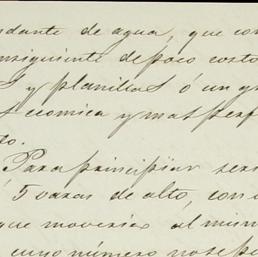 ndante de agua, que con
nsiguiente de poco costo
S y planillas ó un gr
economica y mas perf
to.
Para principiar ser
5 varas de alto, con
que moverias al mism
cuyo número no se p